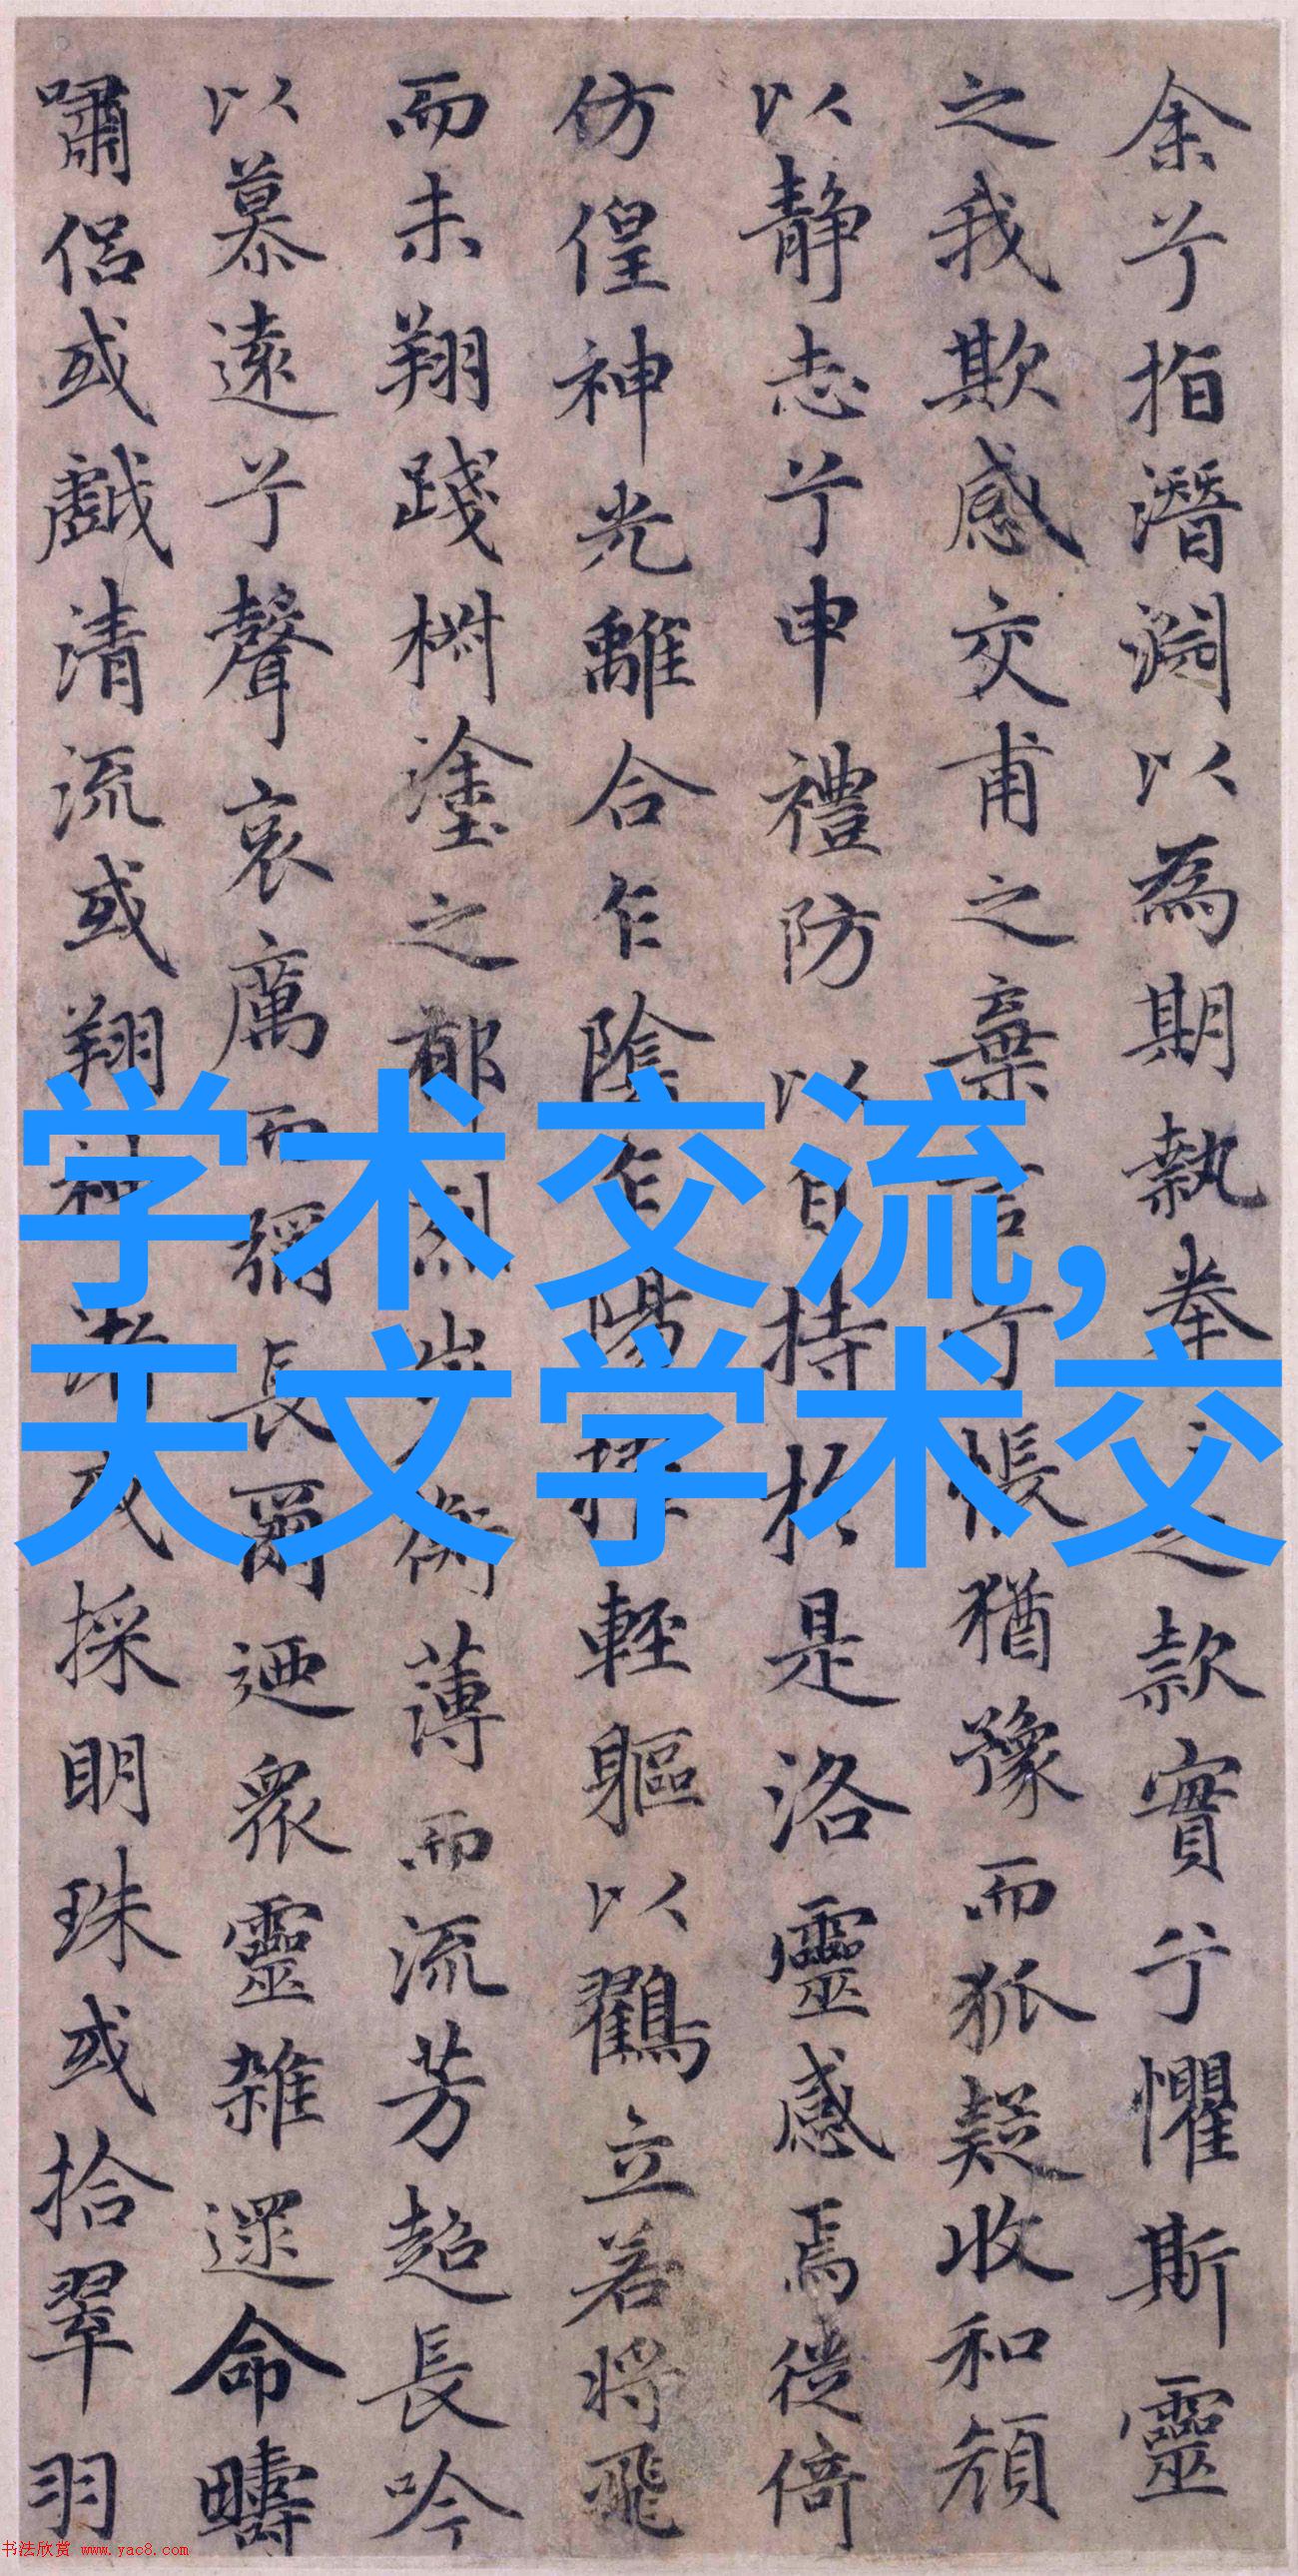 余兮指潛淵以為期執拳之款實兮懼斯靈
之我欺感交甫之棄言兮悵猶豫而狐疑收和顏
以靜志兮申禮防以自持於是洛靈感焉徙倚
仿偟神光離合乍陰乍陽擢輕軀以鶴立若將飛
而未翔踐椒塗之郁烈步衡薄而流芳超長吟
以慕遠兮聲哀厲而彌長爾迺衆靈雜遝命疇
嘯侶或戲清流或翔神渚或採明珠或拾翠羽
学术交流,
天文学术交
书法欣赏 www.yac8.com